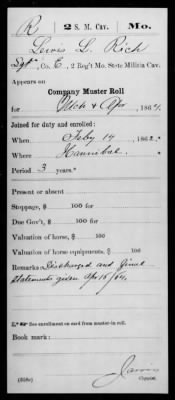 R 2 S. M. Cav. Mo.
Lewis L. Rich
Sgt., Co. E, 2 Reg't Mo. State Militia Cav.
Appears on
Company Muster Roll
for Mch & Apr, 1864.
Joined for duty and enrolled:
When Feby 14, 1862.
Where Hannibal.
Period 3 years.*
Present or absent
Stoppage, $ 100 for
Due Gov't, $ 100 for
Valuation of horse, $ 100
Valuation of horse equipments, $ 100
Remarks Discharged and final
statements given Apr 15/64.
*See enrollment on card from muster-in roll.
Book mark:
(358c)
Jarvis
Copyist.